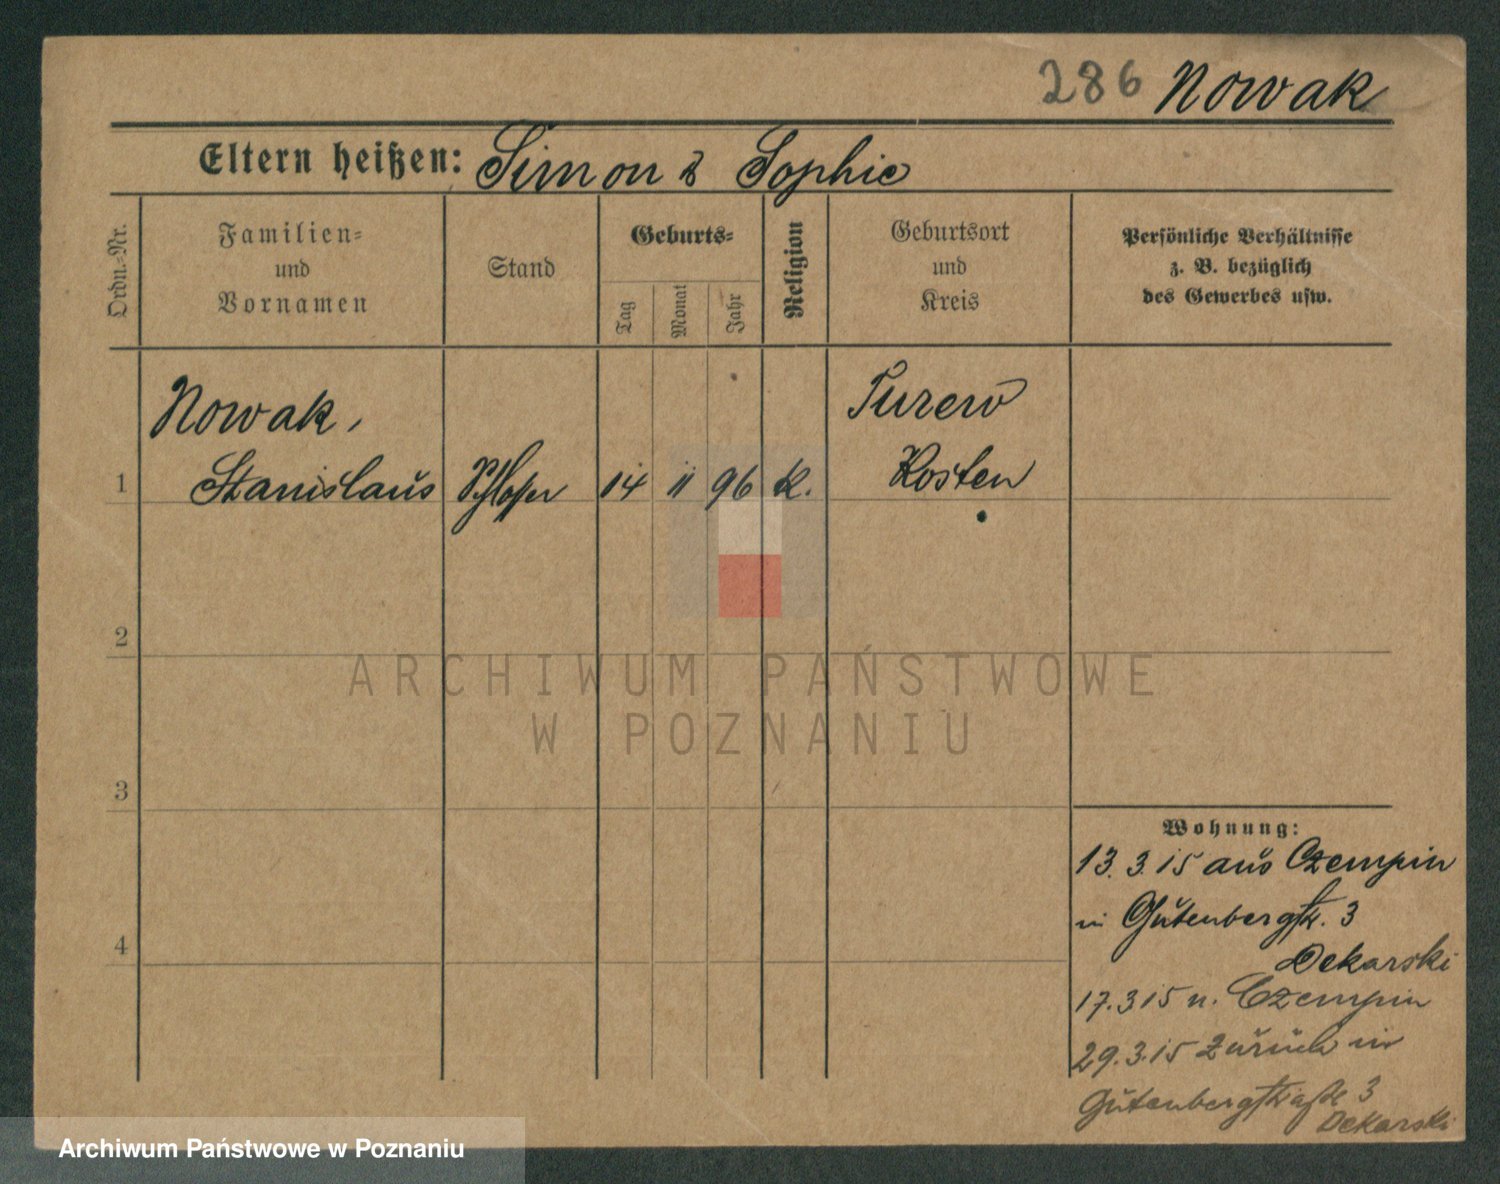 286 Nowak
Eltern heißen: Simon & Sophie
Ordn.-Nr.
Familien-
und
Vornamen
Stand
Geburts-
Tag
Monat
Jahr
Religion
Geburtsort
und
Kreis
Persönliche Verhältnisse
z. B. bezüglich
des Gewerbes usw.
Nowak,
Turew
1 Stanislaus Schlosser 14 11 96 K. Kosten
2
3
4
Wohnung:
13.3.15 aus Czempin
in Gutenbergstr. 3
Dekarski
17.3.15 n. Czempin
29.3.15 zurück in
Gutenbergstraße 3
Dekarski
ARCHIWUM PAŃSTWOWE
W POZNANIU
Archiwum Państwowe w Poznaniu